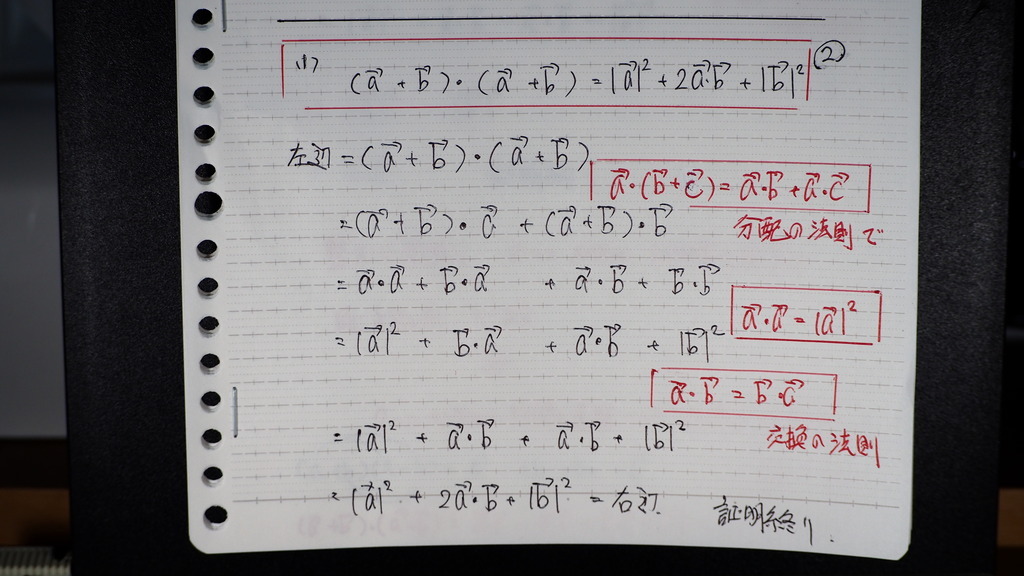 (1) (a⃗ + b⃗)・(a⃗ + b⃗) = |a⃗|² + 2a⃗・b⃗ + |b⃗|² ②
左辺 = (a⃗ + b⃗)・(a⃗ + b⃗)
a⃗・(b⃗ + c⃗) = a⃗・b⃗ + a⃗・c⃗
= (a⃗ + b⃗)・a⃗ + (a⃗ + b⃗)・b⃗
分配の法則で
= a⃗・a⃗ + b⃗・a⃗ + a⃗・b⃗ + b⃗・b⃗
a⃗・a⃗ = |a⃗|²
= |a⃗|² + b⃗・a⃗ + a⃗・b⃗ + |b⃗|²
a⃗・b⃗ = b⃗・a⃗
= |a⃗|² + a⃗・b⃗ + a⃗・b⃗ + |b⃗|²
交換の法則
= |a⃗|² + 2a⃗・b⃗ + |b⃗|² = 右辺
証明終り.